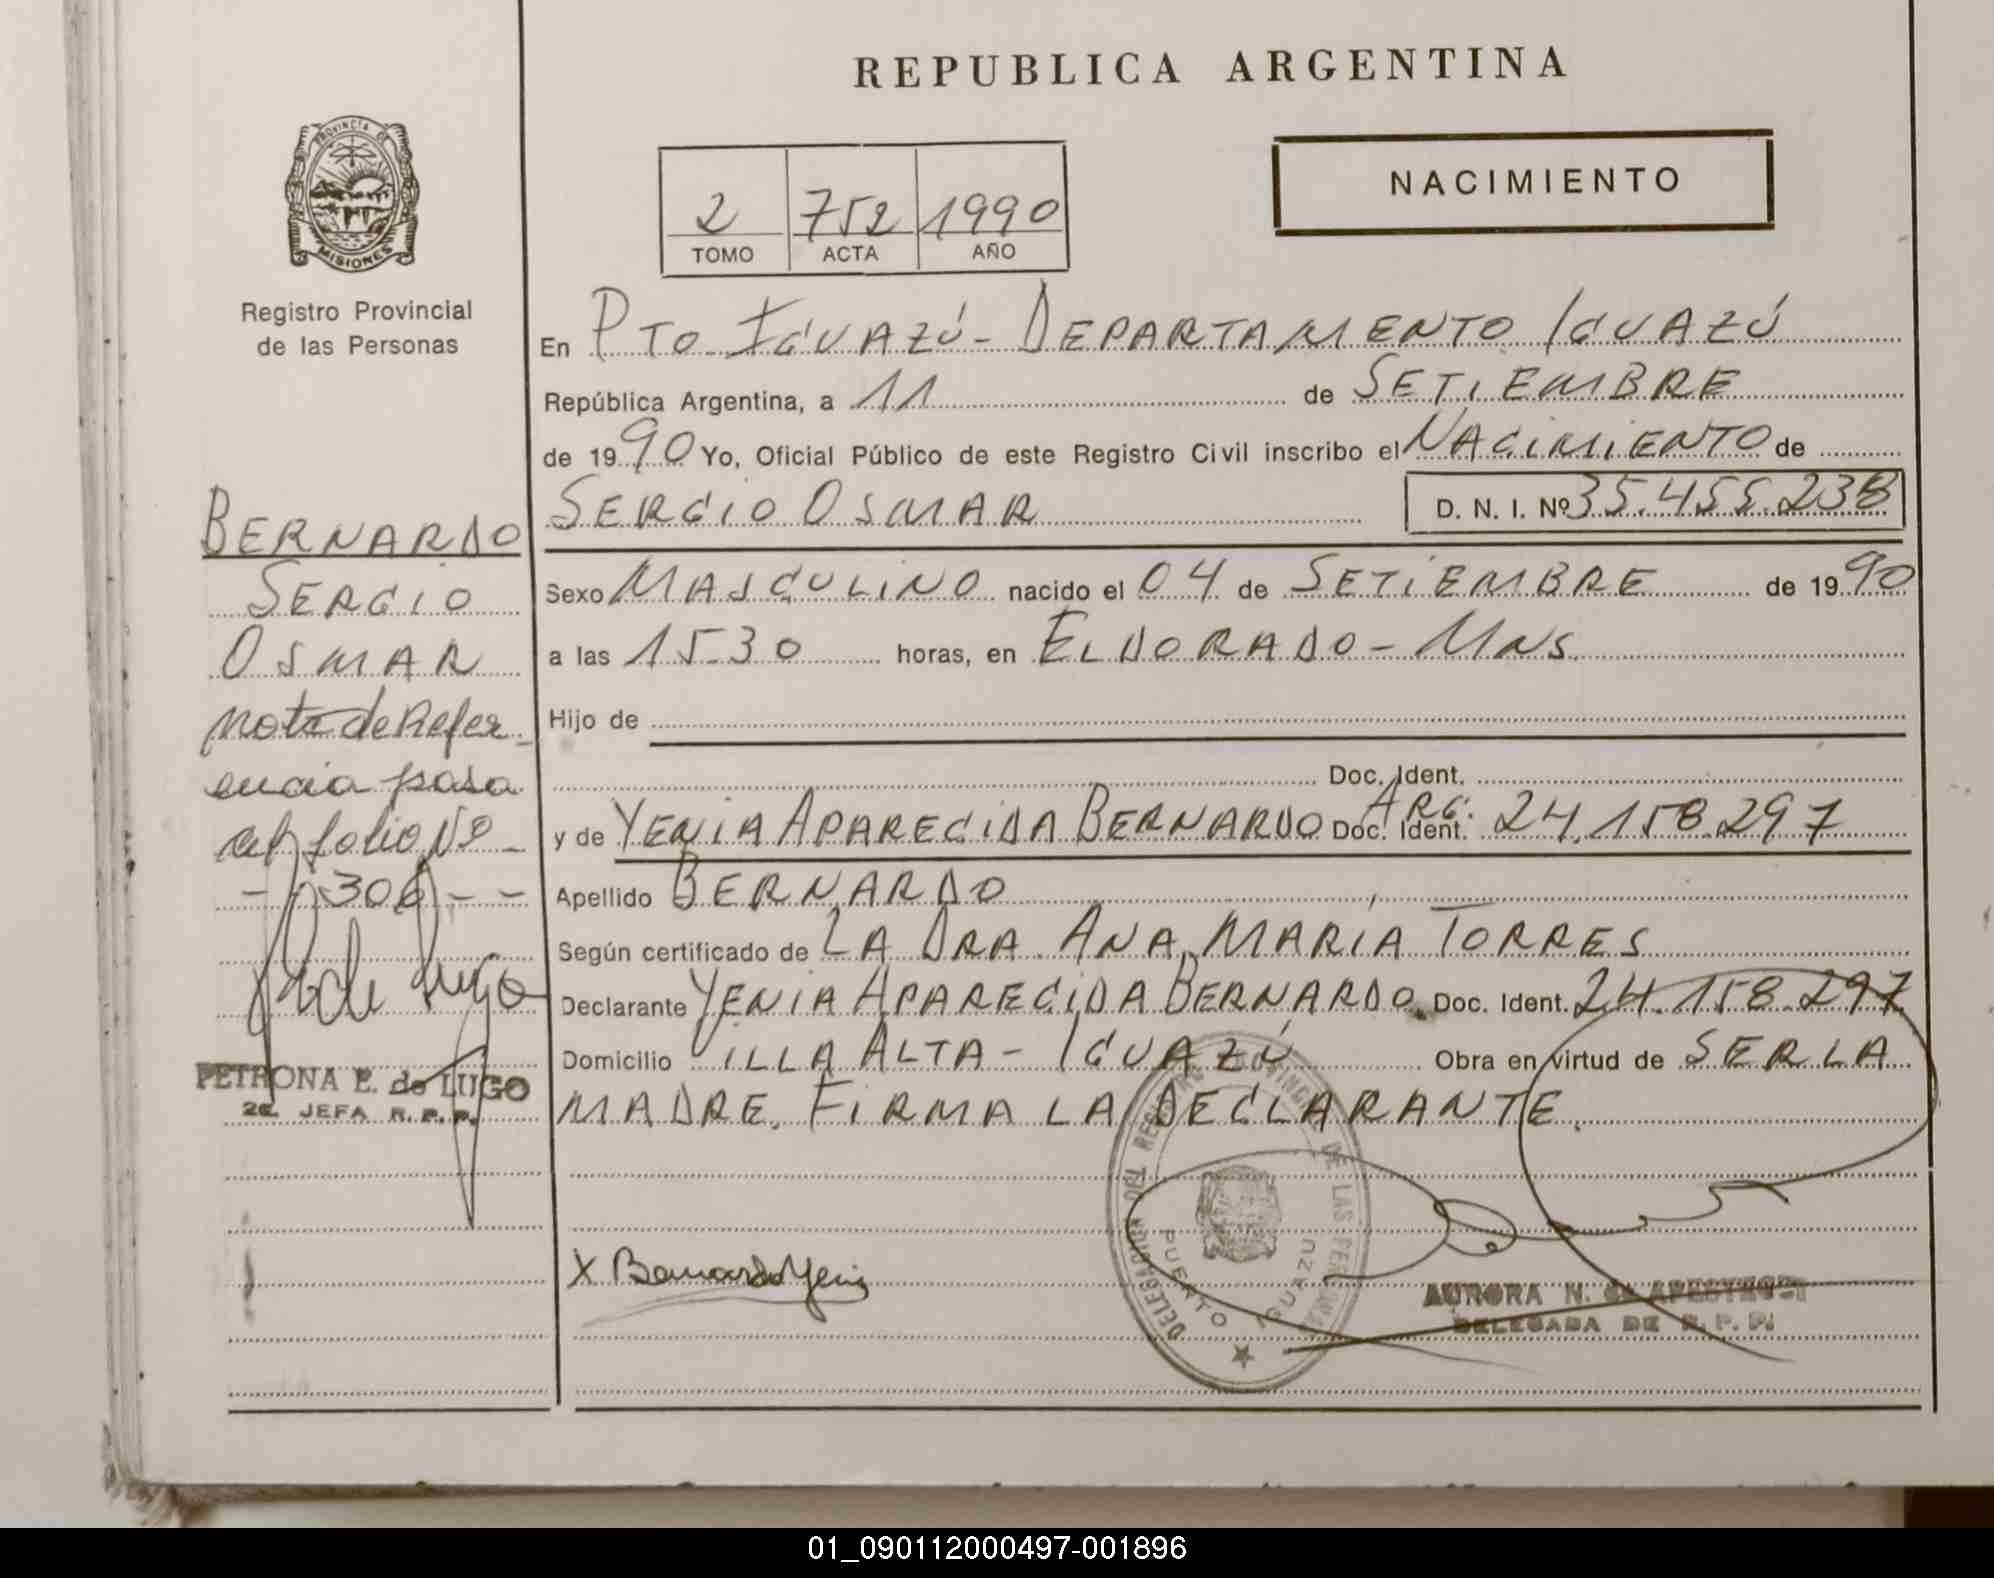 REPUBLICA ARGENTINA
PROVINCIA DE
MISIONES
Registro Provincial
de las Personas
2 752 1990
TOMO ACTA AÑO
NACIMIENTO
En PTO IGUAZÚ - DEPARTAMENTO IGUAZÚ
República Argentina, a 11 de SETIEMBRE
de 1990 Yo, Oficial Público de este Registro Civil inscribo el NACIMIENTO de
SERGIO OSMAR D. N. I. Nº 35.455.238
Sexo MASCULINO nacido el 04 de SETIEMBRE de 1990
a las 15.30 horas, en ELDORADO - MNS.
Hijo de
Doc. Ident.
y de YENIA APARECIDA BERNARDO Doc. Ident. ARG. 24.158.297
Apellido BERNARDO
Según certificado de LA DRA. ANA MARÍA TORRES
Declarante YENIA APARECIDA BERNARDO. Doc. Ident. 24.158.297
Domicilio VILLA ALTA - IGUAZÚ Obra en virtud de SER LA
MADRE. FIRMA LA DECLARANTE.
BERNARDO
SERGIO
OSMAR
nota de Refer_
encia pasa
al folio Nº _
- 306 - -
PETRONA E. de LUGO
2a. JEFA R. P. P.
X Bernardo Yenia
DELEGACION DEL REGISTRO PROVINCIAL DE LAS PERSONAS
PUERTO IGUAZU
AURORA N. de
DELEGADA DE R. P. P.
01_090112000497-001896